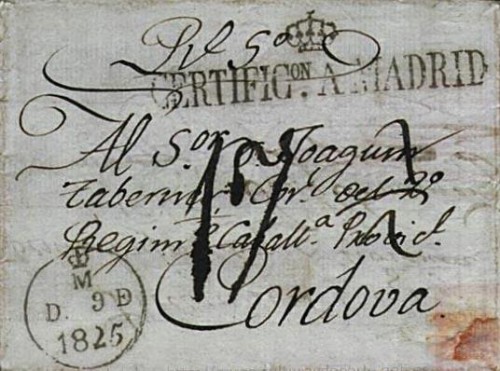 Rl. Sº.
CERTIFIC.ᴼᴺ A MADRID
Al S.ᵒʳ Dⁿ Joaquin
Cor.ˡ del 2º
Regimtº Caball.ª Provicl.
17
Cordova
B
M
D. 9 D
1825